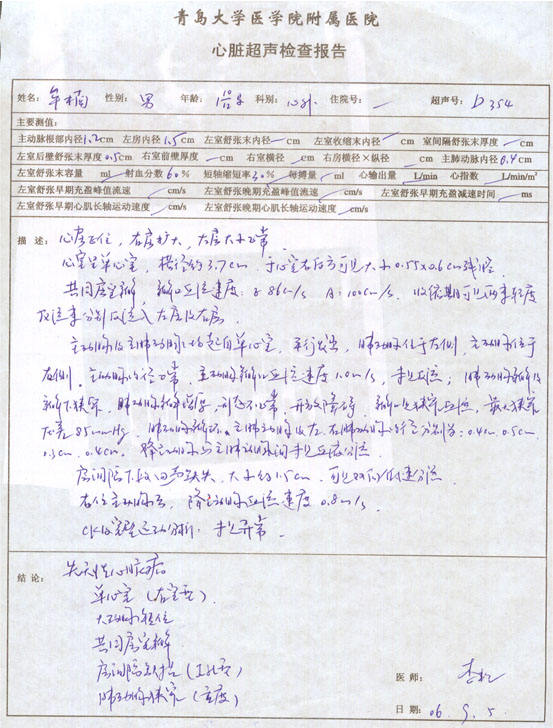 青岛大学医学院附属医院
心脏超声检查报告
姓名: 牟 性别: 男 年龄: 科别: 心外 住院号: — 超声号: D354
主要测值:
主动脉根部内径1.2cm 左房内径1.5cm 左室舒张末内径 cm 左室收缩末内径 cm 室间隔舒张末厚度 cm
左室后壁舒张末厚度0.5cm 右室前壁厚度 cm 右室横径 cm 右房横径×纵径 cm 主肺动脉内径0.4cm
左室舒张末容量 ml 射血分数60% 短轴缩短率30% 每搏量 ml 心输出量 L/min 心指数 L/min/m²
左室舒张早期充盈峰值流速 cm/s 左室舒张晚期充盈峰值流速 cm/s 左室舒张早期充盈减速时间 ms
左室舒张早期心肌长轴运动速度 cm/s 左室舒张晚期心肌长轴运动速度 cm/s
描述: 心房正位,右房扩大,左房大小正常。
心室呈单心室,横径约3.7cm,于心室右后方可见大小0.55×0.6cm残腔
共同房室瓣,瓣口血流速度: 86cm/s A: 100cm/s. 收缩期可见两束轻度
反流束分别反流入左房及右房。
主动脉及主肺动脉均起自单心室,平行发出,肺动脉位于左侧,主动脉位于
右侧。主动脉内径正常,主动脉瓣口血流速度1.0m/s,未见反流;肺动脉瓣及
瓣下狭窄,肺动脉瓣增厚,形态不正常,开放障碍,瓣口见狭窄血流,最大狭窄
压差85mmHg,肺动脉瓣环、主肺动脉及左、右肺动脉内径分别为: 0.4cm、0.5cm、
0.3cm、0.4cm。降主动脉与主肺动脉间未见血液分流。
房间隔下段回声缺失,大小约1.5cm,可见双向低速分流。
右位主动脉弓,降主动脉血流速度0.8m/s。
CK心室壁运动分析: 未见异常。
结论: 先天性心脏病
单心室(右室型)
大动脉转位
共同房室瓣
房间隔缺损(I孔型)
肺动脉狭窄(重度)
医师: 李
日期: 06. 9. 5